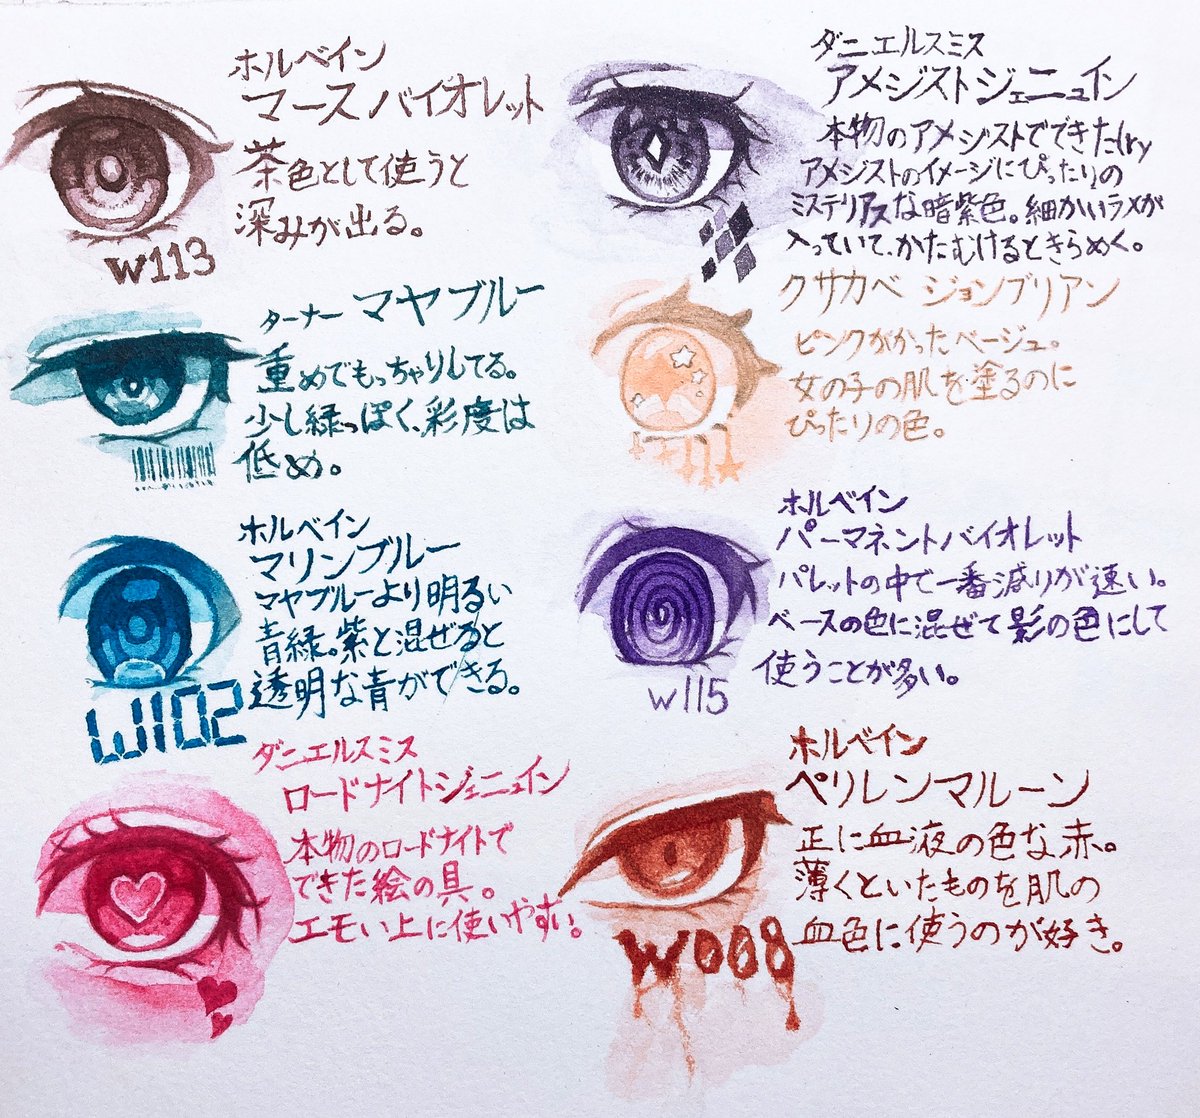 ホルベイン
マースバイオレット
茶色として使うと
深みが出る。
W113
ターナー マヤブルー
重めでもっちゃりしてる。
少し緑っぽく、彩度は
低め。
ホルベイン
マリンブルー
マヤブルーより明るい
青緑。紫と混ぜると
透明な青ができる。
W102
ダニエルスミス
ロードナイトジェニュイン
本物のロードナイトで
できた絵の具。
エモい上に使いやすい。
ダニエルスミス
アメジストジェニュイン
本物のアメジストでできた(ry
アメジストのイメージにぴったりの
ミステリアスな暗紫色。細かいラメが
入っていて、かたむけるときらめく。
クサカベ ジョンブリアン
ピンクがかったベージュ。
女の子の肌を塗るのに
ぴったりの色。
ホルベイン
パーマネントバイオレット
パレットの中で一番減りが速い。
ベースの色に混ぜて影の色にして
使うことが多い。
W115
ホルベイン
ペリレンマルーン
正に血液の色な赤。
薄くといたものを肌の
血色に使うのが好き。
W008